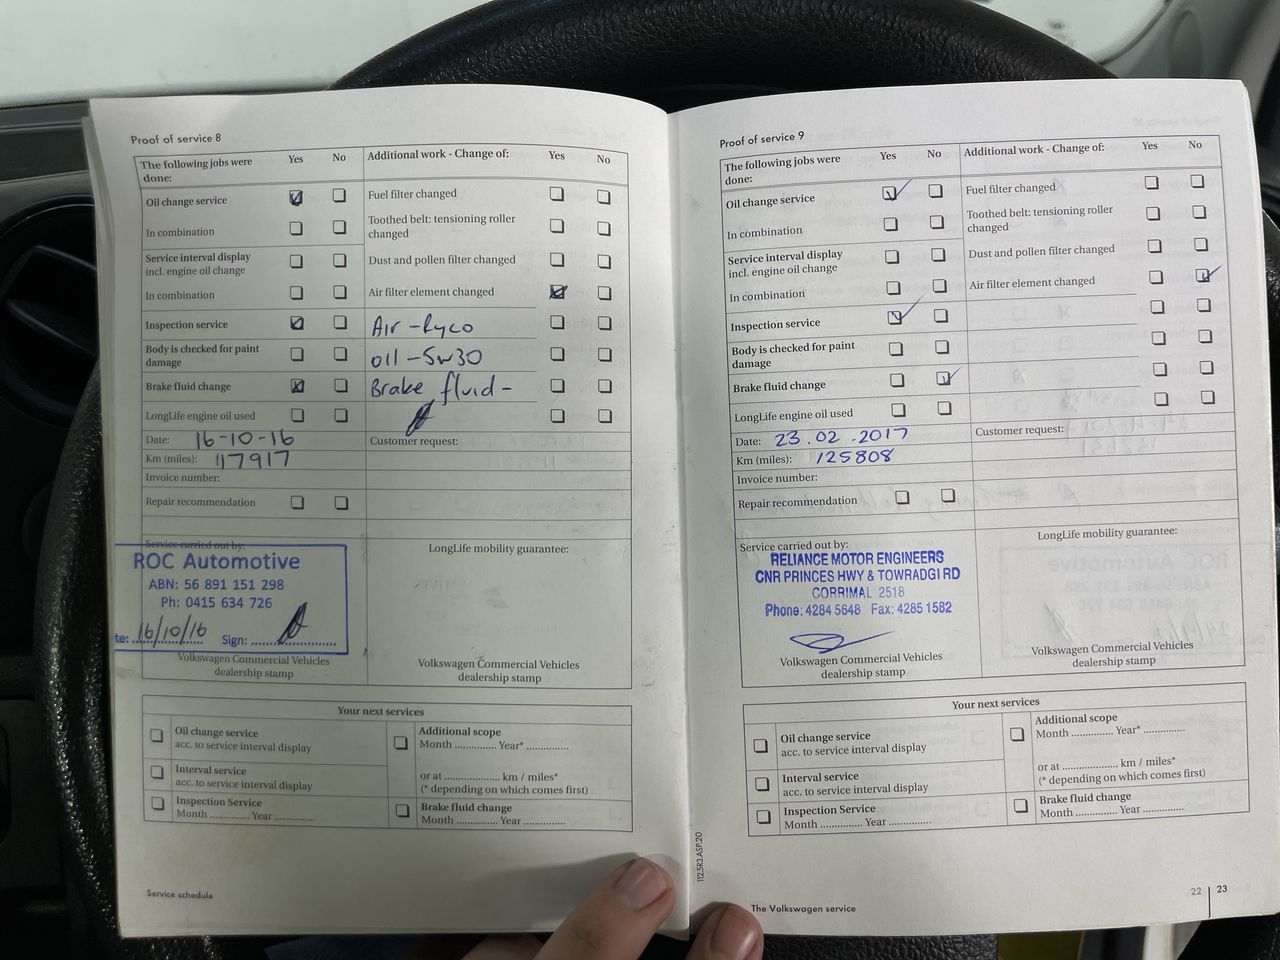 Proof of service 8
The following jobs were done:
Yes
No
Additional work - Change of:
Yes
No
Oil change service
Fuel filter changed
In combination
Toothed belt: tensioning roller changed
Service interval display
incl. engine oil change
Dust and pollen filter changed
In combination
Air filter element changed
Inspection service
Air - Ryco
Body is checked for paint damage
oil - 5w30
Brake fluid change
Brake fluid -
LongLife engine oil used
Date: 16-10-16
Customer request:
Km (miles): 117917
Invoice number:
Repair recommendation
Service carried out by:
LongLife mobility guarantee:
ROC Automotive
ABN: 56 891 151 298
Ph: 0415 634 726
te: 16/10/16 Sign:
Volkswagen Commercial Vehicles
dealership stamp
Volkswagen Commercial Vehicles
dealership stamp
Your next services
Oil change service
acc. to service interval display
Additional scope
Month .............. Year* ..............
Interval service
acc. to service interval display
or at .................... km / miles*
(* depending on which comes first)
Inspection Service
Month ............. Year .............
Brake fluid change
Month ............. Year .............
Service schedule
Proof of service 9
The following jobs were done:
Yes
No
Additional work - Change of:
Yes
No
Oil change service
Fuel filter changed
In combination
Toothed belt: tensioning roller changed
Service interval display
incl. engine oil change
Dust and pollen filter changed
In combination
Air filter element changed
Inspection service
Body is checked for paint damage
Brake fluid change
LongLife engine oil used
Date: 23.02.2017
Customer request:
Km (miles): 125808
Invoice number:
Repair recommendation
Service carried out by:
LongLife mobility guarantee:
RELIANCE MOTOR ENGINEERS
CNR PRINCES HWY & TOWRADGI RD
CORRIMAL 2518
Phone: 4284 5648 Fax: 4285 1582
Volkswagen Commercial Vehicles
dealership stamp
Volkswagen Commercial Vehicles
dealership stamp
Your next services
Oil change service
acc. to service interval display
Additional scope
Month .............. Year* ..............
Interval service
acc. to service interval display
or at .................... km / miles*
(* depending on which comes first)
Inspection Service
Month ............. Year .............
Brake fluid change
Month ............. Year .............
112.5R3.ASP.20
The Volkswagen service
22 | 23